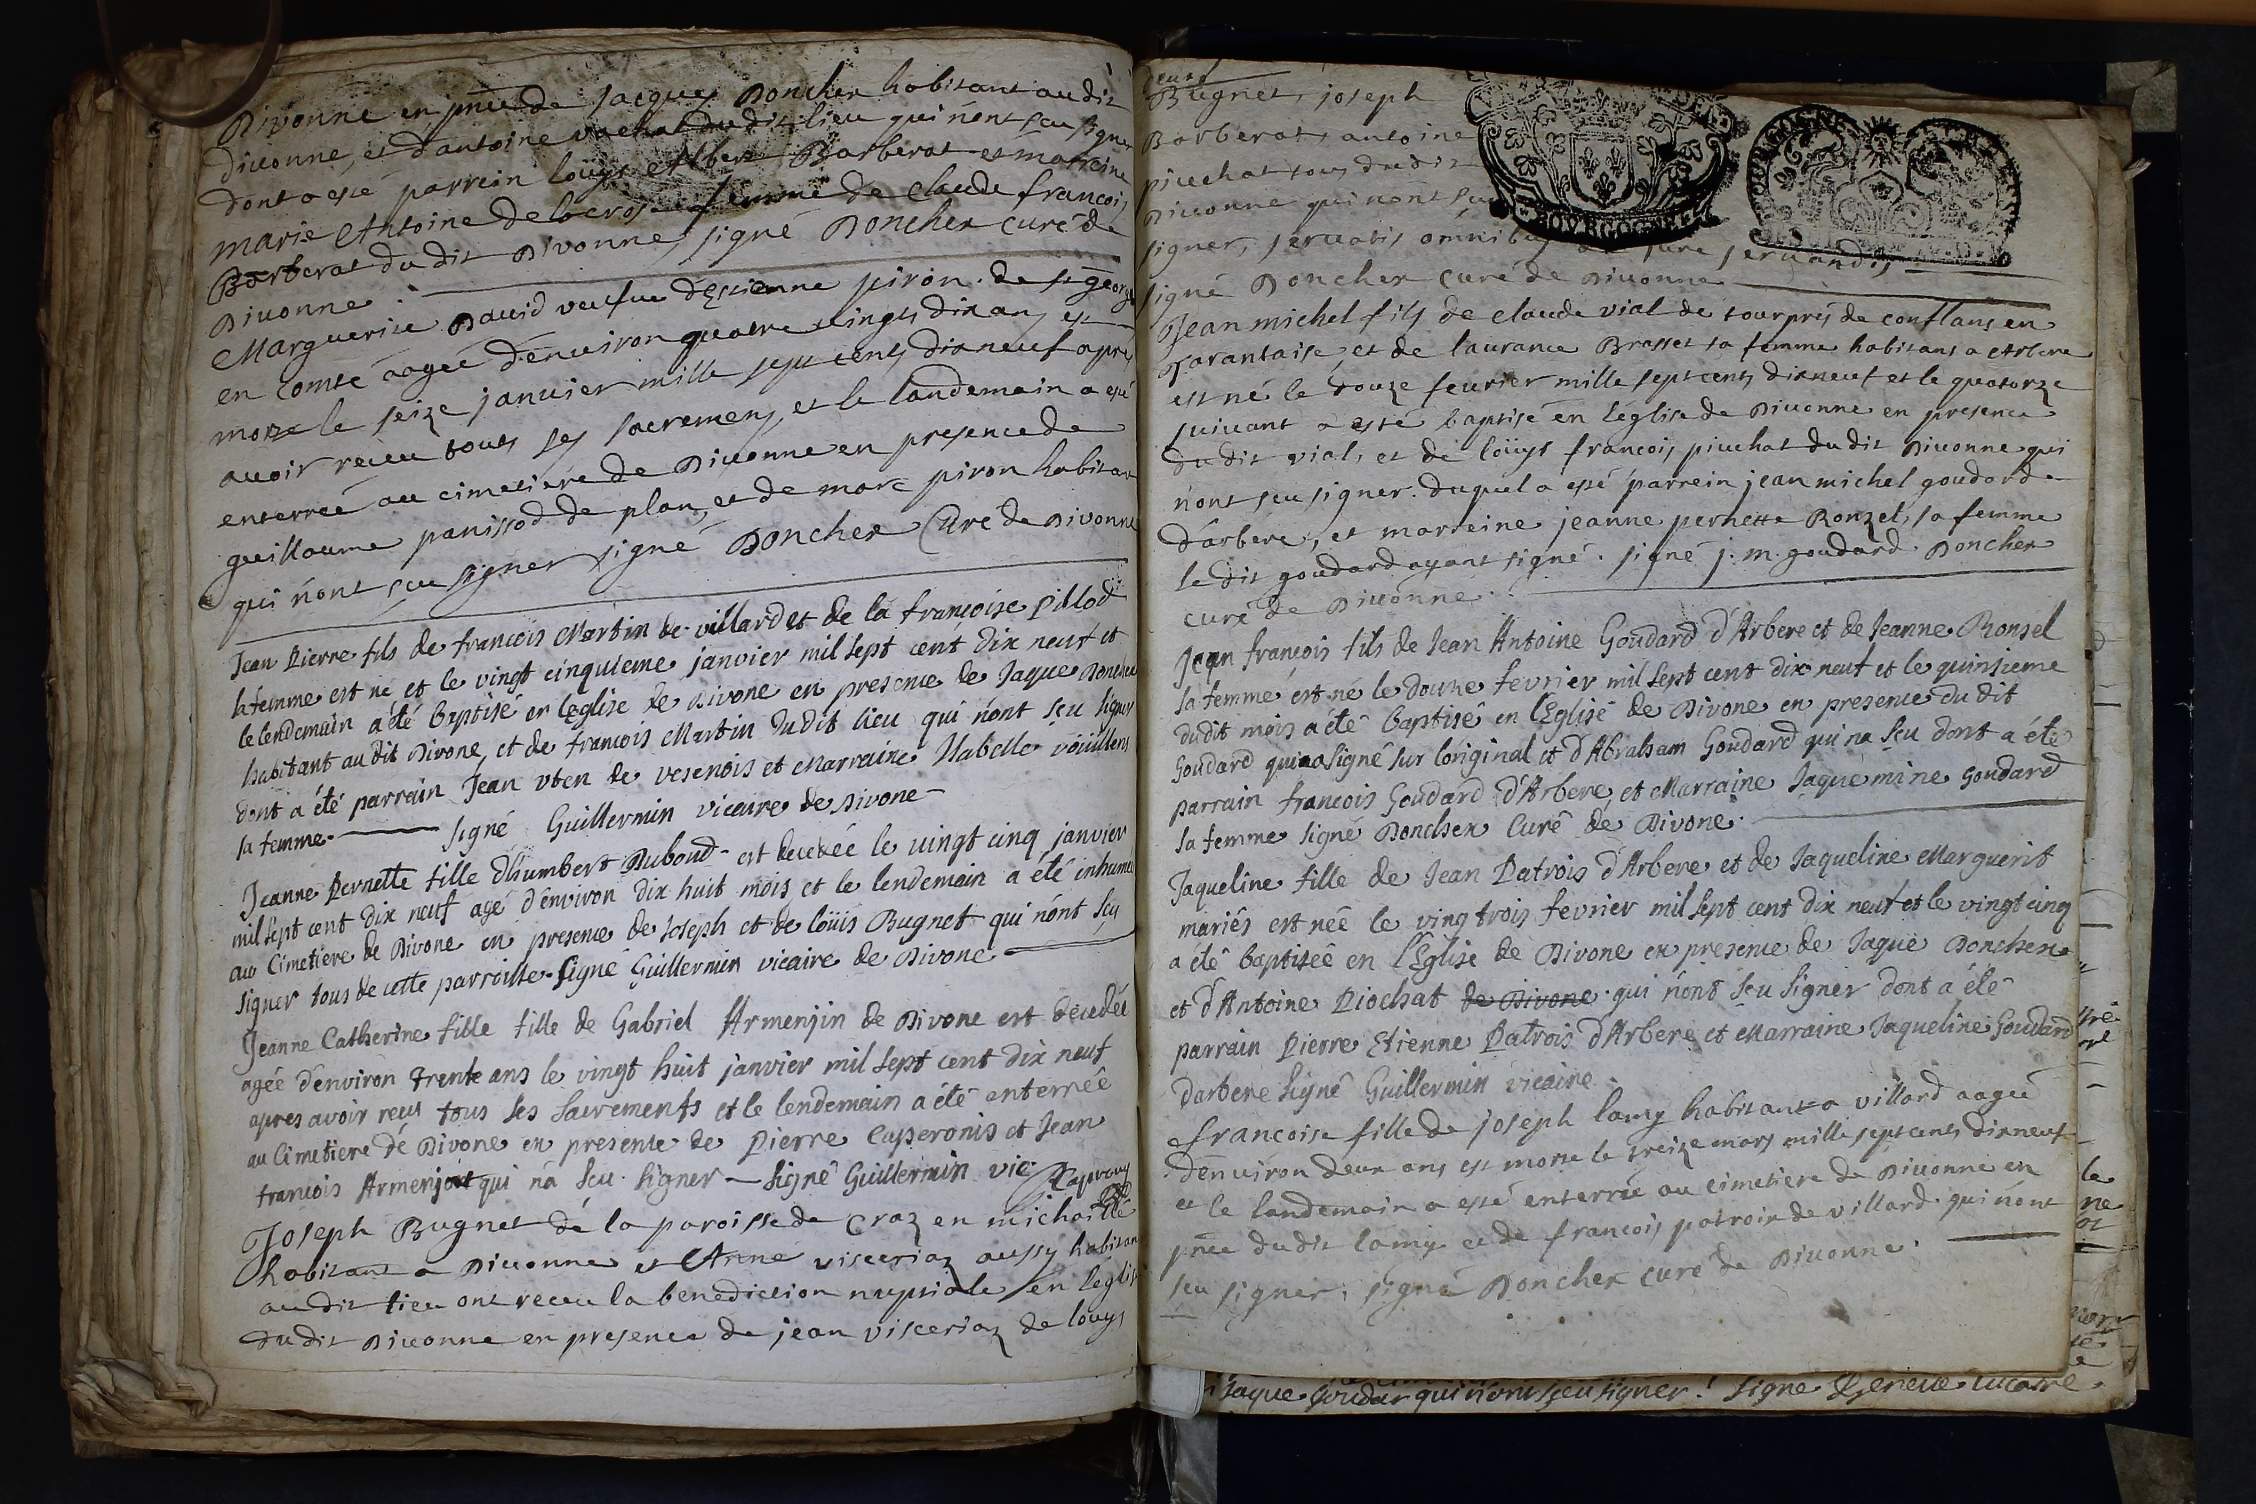 Divonne en pnce de Jacques Doncher habitant au dit
divonne, et d'antoine vachat du dit lieu qui n'ont seu signer
dont a esté parrein louys Albert Barberat et marreine
marie Antoine Delacros femme de claude francois
Barberat du dit Divonne, signé Doncher curé de
Divonne.
Marguerite David veufve d'Estienne piron de st george
en comté aagée d'environ quatre vingts dix ans est
morte le seize janvier mille sept cents dixneuf apres
avoir receu touts ses sacremens, et le landemain a esté
enterrée au cimetiere de Divonne en presence de
guillaume panissod de plan, et de marc piron habitant
qui n'ont seu signer signé Doncher Curé de Divonne
Jean Pierre fils de francois Martin de villard et de la françoise Pillod
sa femme est né et le vingt cinquieme janvier mil sept cent dix neuf et
le lendemain a été baptisé en leglise de Divone en presence de Jaque Doncher
habitant au dit Divone, et de francois Martin du dit lieu qui n'ont seu signer
dont a été parrain Jean vten de vesenois et Marraine Isabelle voüillens
sa femme. signé Guillermin vicaire de Divone
Jeanne Pernette fille d'humbert Duboud est decedée le vingt cinq janvier
mil sept cent dix neuf agé d'environ dix huit mois et le lendemain a été inhumée
au Cimetiere de Divone en presence de Joseph et de loüis Bugnet qui n'ont seu
signer tous de cette parroisse. signé Guillermin vicaire de Divone
Jeanne Catherine fille fille de Gabriel Armenjin de Divone est decedée
agée d'environ trente ans le vingt huit janvier mil sept cent dix neuf
apres avoir reçu tous ses Sacrements et le lendemain a été enterrée
au Cimetiere de Divone en presente de Pierre Casperonis et Jean
francois Armenjont qui n'a seu signer — signé Guillermin vic:
Joseph Bugnet de la paroisse de Craz en michaille
habitant a Divonne et Anne visceriaz aussy habitant
au dit lieu ont receu la benediction nuptiale en l'eglise
du dit Divonne en presence de jean visceriaz de louys
Bugnet, joseph
Barberat, antoine
piuchat tous du dit
Divonne qui n'ont seu
signer, servatis omnibus de jure servandis
signé Doncher Curé de Divonne
BOVRGOGNE
Jean michel fils de claude vial de tour prés de conflans en
Tarantaise, et de laurance Brasset sa femme habitans a Arbere
est né le douze feurier mille sept cents dixneuf et le quatorze
suivant a esté baptisé en l'église de Divonne en presence
du dit vial, et de loüys francois piuchat du dit Divonne qui
n'ont seu signer. duquel a esté parrein jean michel goudard
d'arbere, et marreine jeanne pernette Ronzel, sa femme
le dit goudard ayant signé. signé j. m. goudard. Doncher
curé de Divonne.
Jean françois fils de Jean Antoine Goudard d'Arbere et de Jeanne Ronsel
sa femme est né le douze fevrier mil sept cent dix neuf et le quinsieme
dudit mois a été baptisé en l'Eglise de Divone en presence du dit
Goudard qui a signé sur l'original et d'Abraham Goudard qui na seu dont a été
parrain francois Goudard d'Arbere, et Marraine Jaquemine Goudard
sa femme signé Doncher Curé de Divone.
Jaqueline fille de Jean Patrois d'Arbere et de Jaqueline Marguerit
mariés est née le ving trois fevrier mil sept cent dix neuf et le vingt cinq
a été baptisée en l'Eglise de Divone en presence de Jaque Doncher
et d'Antoine Piochat de Divone qui n'ont seu signer dont a été
parrain Pierre Etienne Patrois d'Arbere et Marraine Jaqueline Goudard
d'arbere signé Guillermin vicaire.
francoise fille de joseph lamy habitant a villard aagée
d'environ deux ans est morte le treize mars mille sept cents dixneuf
et le landemain a esté enterrée au cimetiere de Divonne en
pnce du dit lamy et de francois patroix de villard qui n'ont
seu signer. signé Doncher curé de Divonne.
Jaque Goudar qui n'ont sceu signer. signe